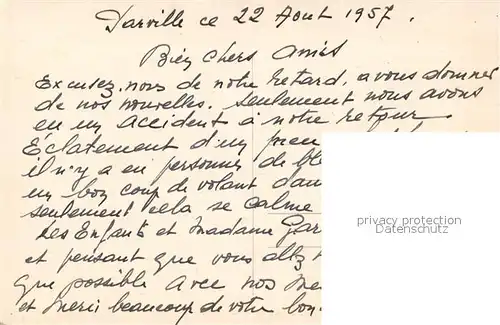 Darville ce 22 Aout 1957.
Bien chers amis
Excusez, nous de notre retard, a vous donner
de nos nouvelles. seulement nous avons
eu un accident à notre retour.
Éclatement d'un pneu
il n'y a eu personne de bl
un bon coup de volant dan
seulement cela se calme
Les Enfants et Madame Gar
et pensant que vous allez
que possible Avec nos
et Merci beaucoup de votre bon
privacy protection